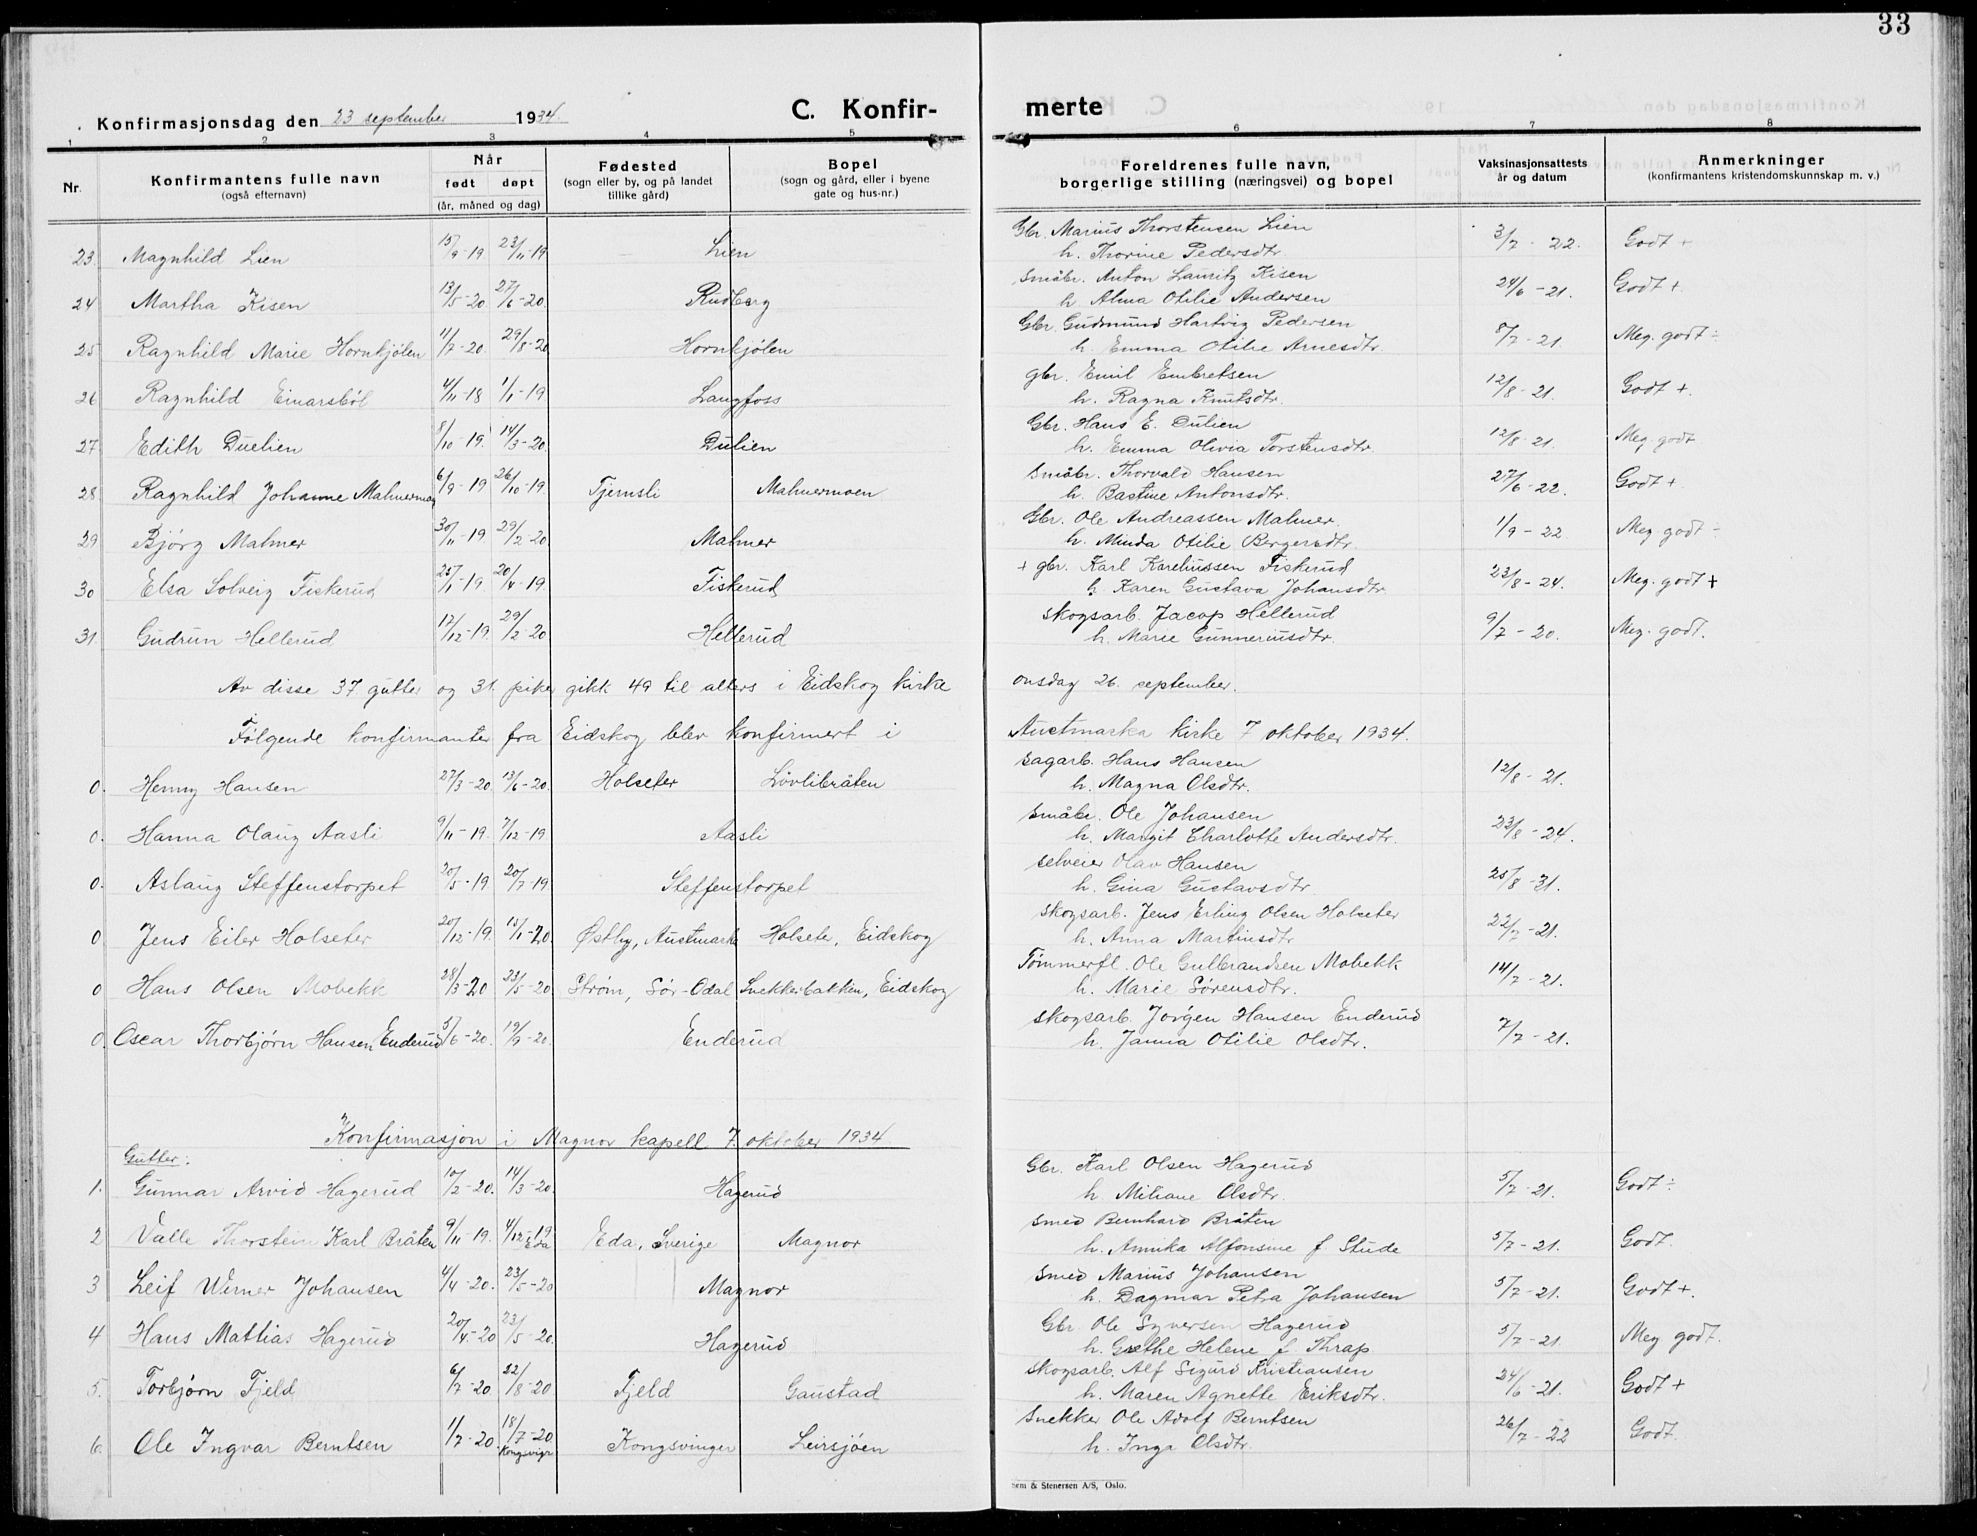 33
Konfirmasjonsdag den 23 september 1934 C. Konfir- merte
1 2 3 4 5 6 7 8
Nr. Konfirmantens fulle navn (også efternavn) Når født døpt (år, måned og dag) Fødested (sogn eller by, og på landet tillike gård) Bopel (sogn og gård, eller i byene gate og hus-nr.) Foreldrenes fulle navn, borgerlige stilling (næringsvei) og bopel Vaksinasjonsattests år og datum Anmerkninger (konfirmantens kristendomskunnskap m. v.)
23 Magnhild Lien 15/9-19 23/11-19 Lien Gbr. Marius Thorstensen Lien 3/7-22. Godt +
h. Thorine Pedersdtr
24 Martha Kisen 13/5-20 27/6-20. Rudberg Småbr. Anton Lauritz Kisen 24/6-21. Godt +
h. Alma Otilie Andersen
25 Ragnhild Marie Hornkjølen 11/7-20. 29/8-20 Hornkjølen Gbr. Gudmund Hartvig Pedersen 8/7-21. Meg. godt ÷
h. Emma Otilie Arnesdtr.
26 Ragnhild Einarsbøl 4/11-18 1/1-19 Langfoss gbr. Emil Embretsen 12/8-21. Godt +.
h. Ragna Knutsdtr.
27 Edith Duelien 8/10-19. 14/3-20. Dulien Gbr. Hans E. Dulien 12/8-21. Meg. godt
h. Emma Olivia Torstensdtr.
28 Ragnhild Johanne Malmermoen 6/9-19 26/10-19. Tjernsli Malmermoen Småbr. Thorvald Hansen 27/6-22. Godt +
h. Bastine Antonsdtr.
29 Bjørg Malmer 30/11-19 29/2-20 Malmer Gbr. Ole Andreassen Malmer. 1/9-22 Meg. godt ÷
h. Minda Otilie Bergersdtr.
30 Elsa Solveig Fiskerud 25/1-19 20/4-19. Fiskerud + gbr. Karl Kareliussen Fiskerud 23/8-24. Meg. godt +
h. Karen Gustava Johansdtr
31 Gudrun Hellerud 17/12-19. 29/2-20 Hellerud Skogsarb. Jacop Hellerud 9/7-20. Meg. godt.
h. Marie Gunneriusdtr.
Av disse 37 gutter og 31 piker gikk 49 til alters i Eidskog kirke onsdag 26. september.
Følgende konfirmanter fra Eidskog blev konfirmert i Austmarka kirke 7 oktober 1934.
0. Henny Hansen 27/3-20. 13/6-20. Holseter Løvlibråten Sagarb. Hans Hansen 12/8-21.
h. Magna Olsdtr.
0. Hanna Olaug Aasli 9/11-19. 7/12-19 Aasli Småbr. Ole Johansen 23/8-24.
h. Margit Charlotte Andersdtr.
0. Aslaug Steffenstorpet 20/5-19 20/7-19. Steffenstorpet selveier Olav Hansen 25/8-31.
h. Gina Gustavsdtr
0 Jens Eiler Holseter 20/12-19. 15/1-20. Østby, Austmarka Holsete, Eidskog Skogsarb. Jens Erling Olsen Holseter 22/7-21.
h. Anna Martinsdtr
0 Hans Olsen Mobekk 28/3-20 23/5-20. Strøm, Sør-Odal Snekkerbakken, Eidskog Tømmerfl. Ole Gulbrandsen Mobekk 14/7-21.
h. Marie Sørensdtr.
0. Oscar Thorbjørn Hansen Enderud 5/6-20. 19/9-20. Enderud Skogsarb. Jørgen Hansen Enderud 7/7-21.
h. Janna Otilie Olsdtr.
Konfirmasjon i Magnor kapell 7. oktober 1934
Gutter:
1. Gunnar Arvid Hagerud 10/2-20. 14/3-20. Hagerud Gbr. Karl Olsen Hagerud 5/7-21. Godt ÷
h. Miliane Olsdtr.
2 Valle Thorstein Karl Bråten 9/11-19. 4/12-19 Eda Eda, Sverige Magnor Smed Bernhard Bråten 5/7-21. Godt.
h. Annika Alfonsine f. Stude
3 Leif Werner Johansen 4/4-20. 23/5-20 Magnor Smed Marius Johansen 5/7-21. Godt +.
h. Dagmar Petra Johansen
4 Hans Mattias Hagerud 20/4-20 23/5-20. Hagerud Gbr. Ole Syversen Hagerud 5/7-21 Meg godt.
h. Grethe Helene f. Thrap
5. Torbjørn Fjeld 6/7-20 22/8-20 Fjeld Gaustad Skogsarb. Alf Sigurd Kristiansen 24/6-21. Godt +
h. Maren Agnette Eriksdtr.
6. Ole Ingvar Berntsen 1/7-20. 18/7-20 Kongsvinger Kongsvinger Leirsjøen Snekker Ole Adolf Berntsen 26/7-22 Godt.
h. Inga Olsdtr.
Sem & Stenersen A/S, Oslo.